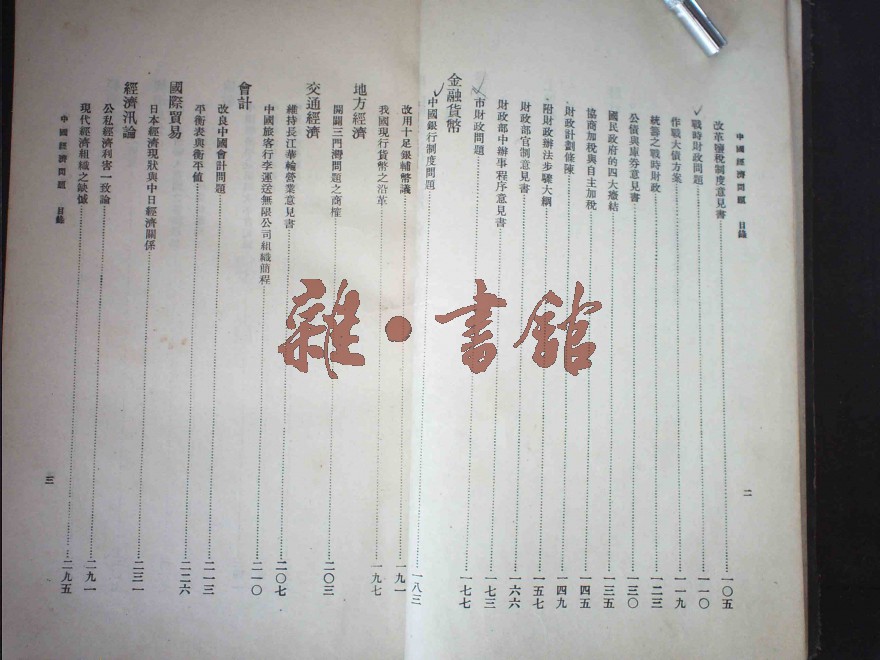 中國經濟問題 目錄
二
改革鹽稅制度意見書……一〇五
戰時財政問題……一一〇
作戰大債方案……一一九
統籌之戰時財政……一二三
公債與庫券意見書……一三〇
國民政府的四大癥結……一三五
協商加稅與自主加稅……一四五
財政計劃條陳……一四九
附財政辦法步驟大綱……一五七
財政部官制意見書……一六六
財政部中辦事程序意見書……一七三
市財政問題……一七七
金融貨幣
中國銀行制度問題……一八三
改用十足銀輔幣議……一九一
我國現行貨幣之沿革……一九七
地方經濟
開闢三門灣問題之商榷……二〇三
交通經濟
維持長江華輪營業意見書……二〇七
中國旅客行李運送無限公司組織簡程……二一〇
會計
改良中國會計問題……二一三
平衡表與衡平值……二二六
國際貿易
日本經濟現狀與中日經濟關係……二三一
經濟汎論
公私經濟利害一致論……二九一
現代經濟組織之缺憾……二九五
中國經濟問題 目錄
三
雜·書館